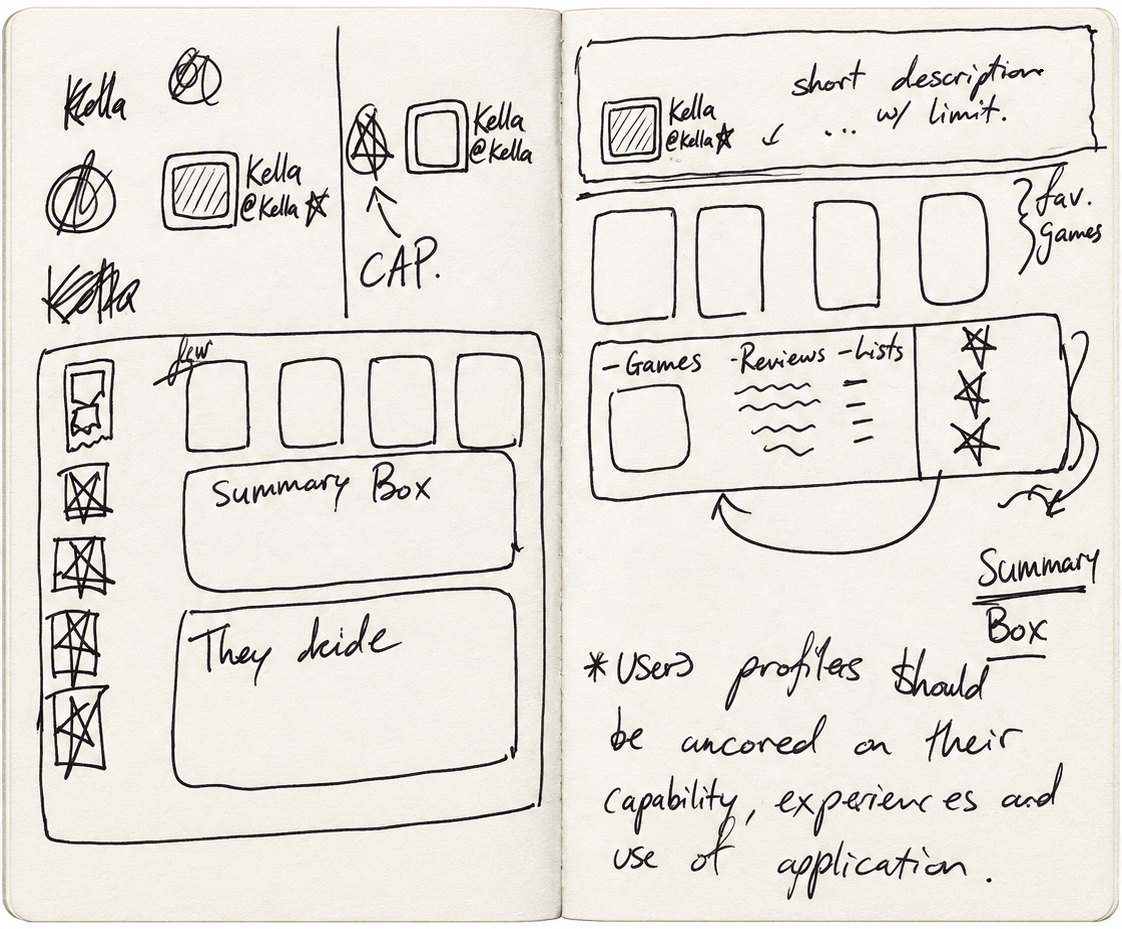 Kella
Kella
@Kella
Kella
Kella
@Kella
CAP.
few
Summary Box
They decide
short description
... w/ limit.
Kella
@Kella
fav.
Games
- Games
- Reviews
- Lists
Summary
Box
* Users profiles should
be ancored on their
capability, experiences and
use of application.